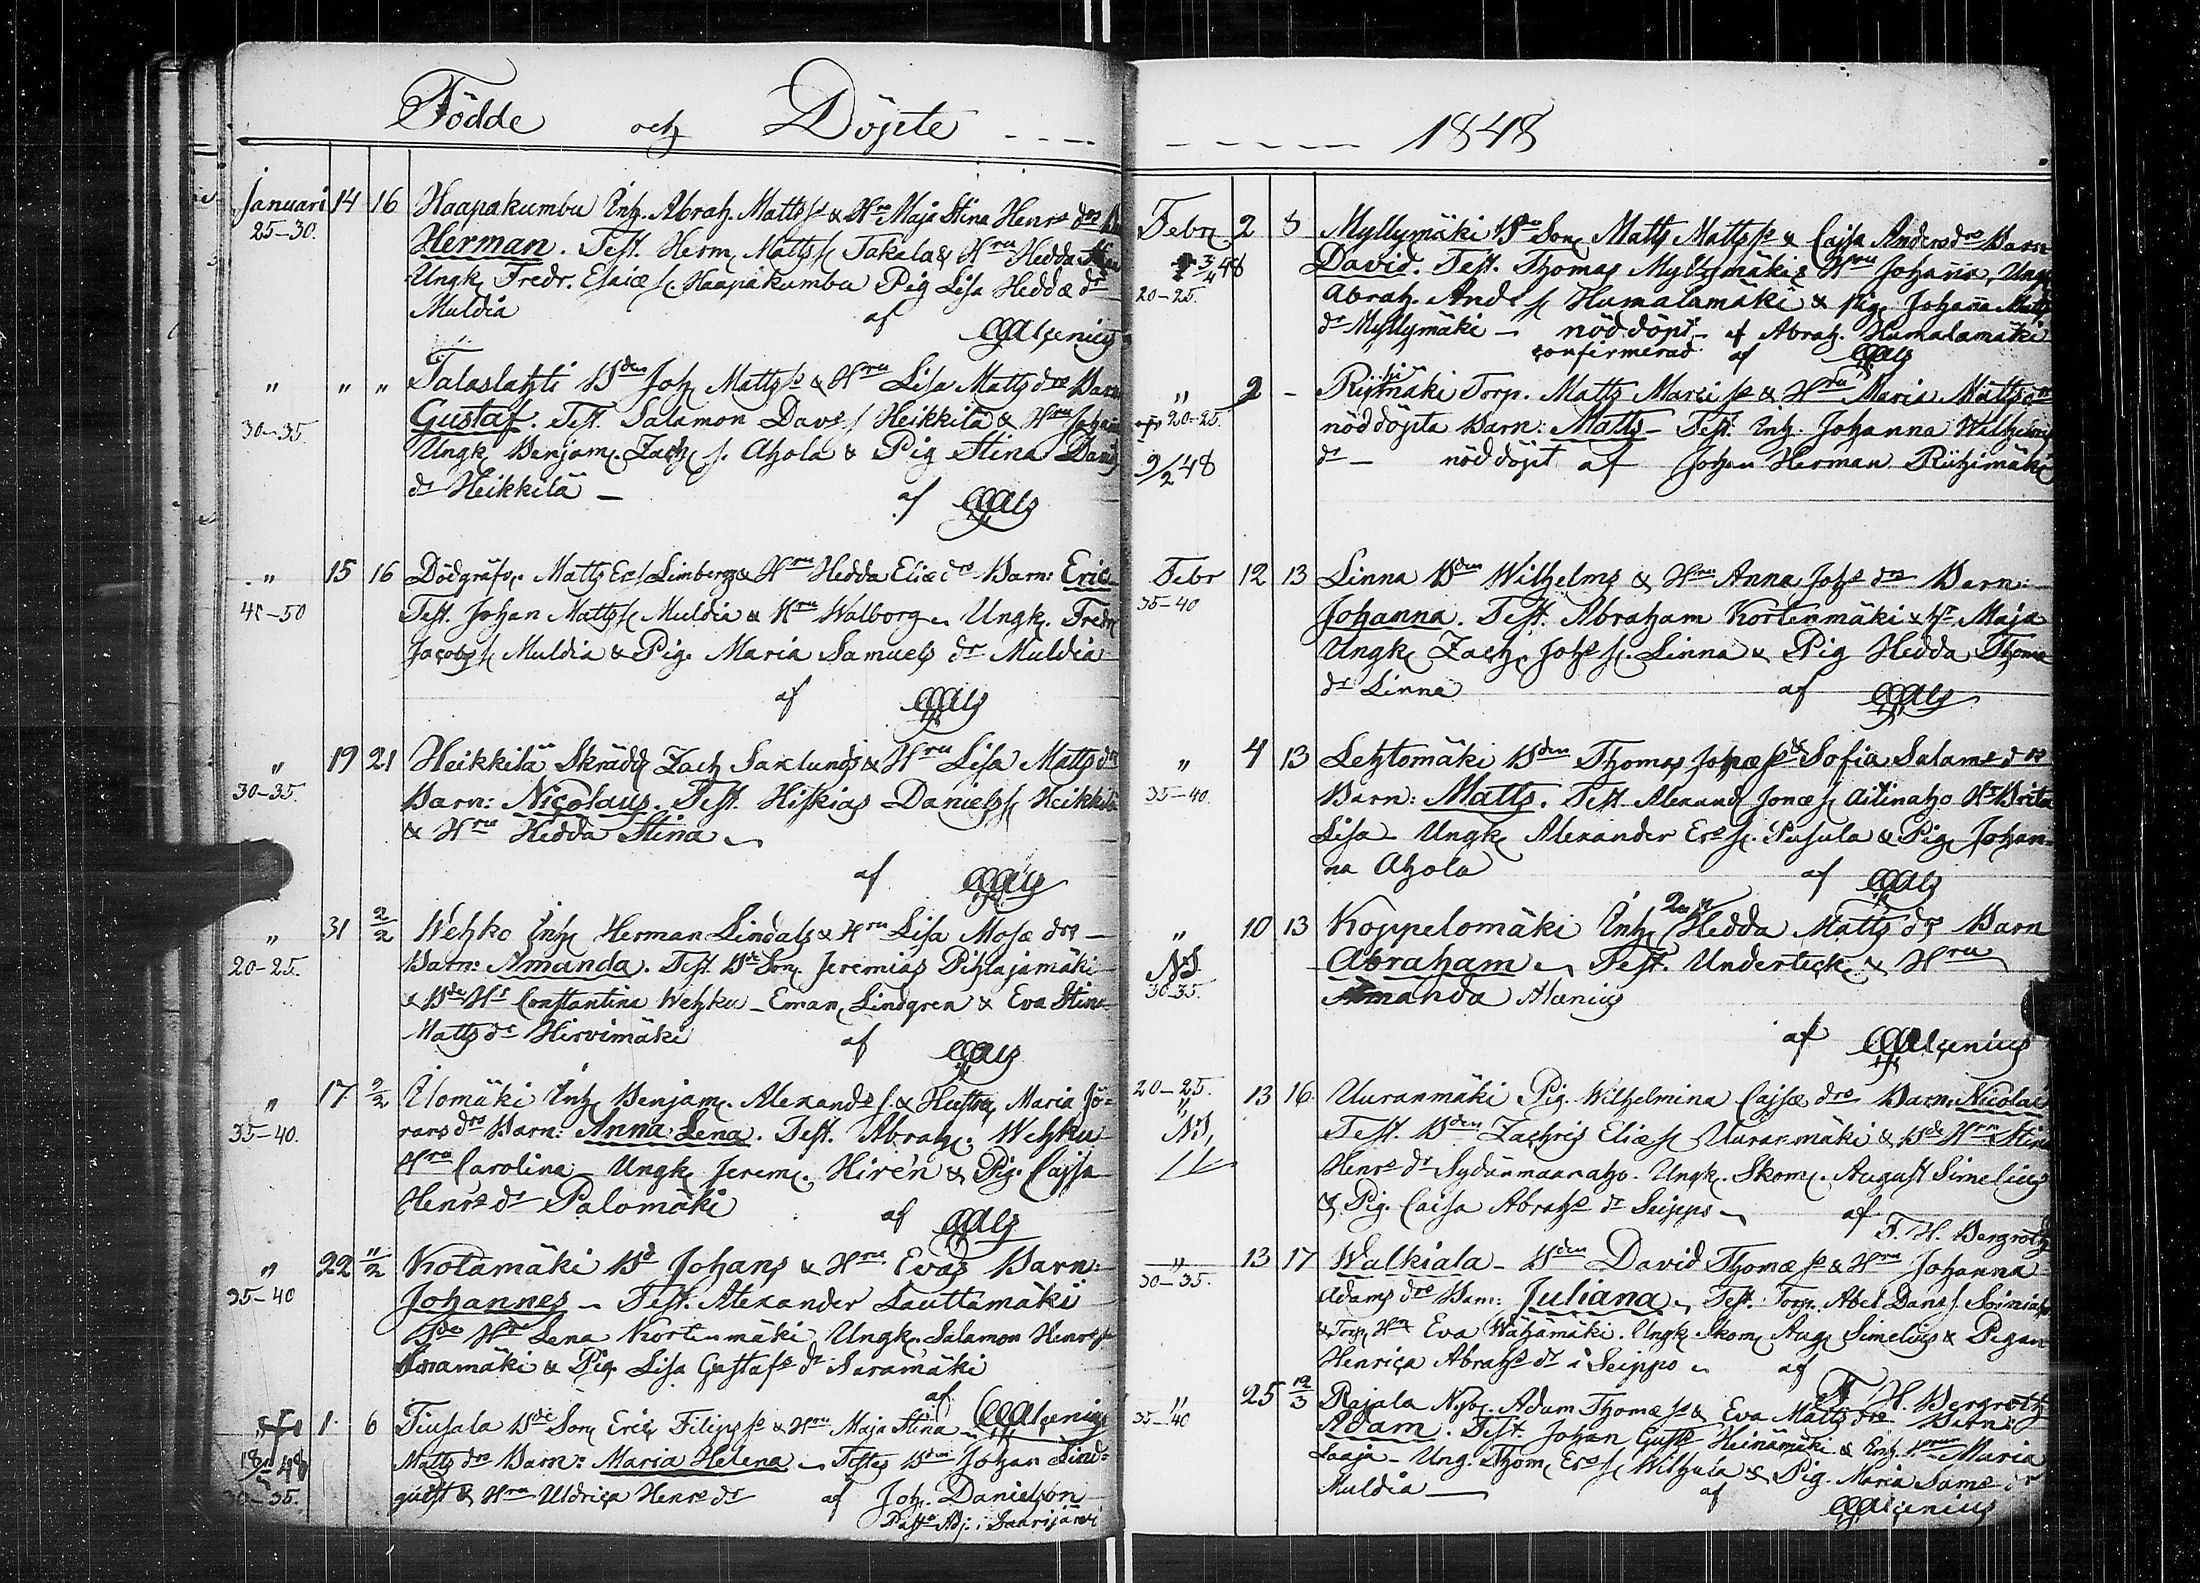 Födde och Döpte
1848
Januari 14 16 Haapakumbu Inh. Abrah. Matts & Hru Maja Stina Henrs dr
25-30. Herman. Test. Herm. Matts Takala & Hru Hedda
Ungk. Fredr. Esaiæ Haapakumbu Pig Lisa Heddæ dr
Muldia af Alcenius
" " " Talaslahti Bden Joh Matts & Hru Lisa Matts drs Barn
30-35. Gustaf. Test. Salamon Davs Heikkilä & Hru
Ungk Benjam. Zach s. Ahola & Pig Stina
dr Heikkilä af
" 15 16 Dödgräfv. Matts Er Limberg & Hru Hedda Eliæ drs Barn: Eric
Test. Johan Matts Muldia & Hru Walborg Ungk. Fredr
Jacobs Muldia & Pig. Maria Samuels dr Muldia
af
" 19 21 Heikkilä Skrädd Zach Saxlunds & Hru Lisa Matts dr
30-35. Barn: Nicolaus. Test. Hiskias Daniels Heikkilä
& Hru Hedda Stina
af
" 31 2/2 Wehko Inh. Herman Lindals & Hru Lisa Mosæ drs
20-25. Barn: Amanda. Test. Bde Son Jeremias Pihlajamäki
& Bde Hr Constantina Wehku Eman. Lindgren & Eva Stina
Matts dr Hirvimäki af
" 17 2/2 Ulomäki Inh. Benjam. Alexands & Hustru Maria Jö-
35-40. rans drs Barn: Anna Lena. Test. Abrah. Wehku
Hru Carolina Ungk Jerem. Hirén & Pig. Cajsa
Henrs dr Palomäki af
" 22 "/2 Kotamäki Bd Johans & Hru Evas Barn:
35-40 Johannes Test. Alexander Lauttamäki
Bde Hru Lena Kortenmäki Ungk. Salamon Henrs
& Pig. Lisa Gustafs dr Saramäki
af Alcenius
1 6 Tiusala Bde Son Eric Filips & Hru Maja Stina
Matts drs Barn: Maria Helena Testes Bden Johan Lind-
30-35. quist & Hru Uldrica Henrs dr af Joh. Danielson
Past. Adj. i Saarijärvi
Febr 2 8 Myllymäki Bde Son Matts Matts & Cajsa Anders drs Barn
3/4 48 David. Test. Thomas Myllymäki & Hru Johanna, Ungk
20-25. Abrah. Ands Humalamäki & pig. Johanna Matts
dr Myllymäki nöddöpt af Abrah. Humalamäki
confirmerad af
" 2 - Riihimäki Torp. Matts Marci & Hru Maria Matts drs
20-25. nöddöpta Barn: Matts Test. Inh. Johanna Wilhelms
9/2 48 dr nöddöpt af Johan Herman Riihimäki
Febr 12 13 Linna Bden Wilhelms & Hru Anna Johs drs Barn:
35-40 Johanna. Test. Abraham Kortenmäki & Hr Maja
Ungk Zach. Johs Linna & Pig Hedda Thomæ
dr Linna af
" 4 13 Lehtomäki Bden Thomas Johæ & Sofia Salams drs
35-40. Barn: Matts. Test. Alexand. Jonæ Aitinaho Hr Brita
Lisa Ungk Alexander Ers Pusula & Pig Johan-
na Ahola af
" 10 13 Koppelomäki Inh. Hedda Matts drs Barn
30-35. Abraham Test. Underteck. & Hru
Amanda Alcenius
af Alcenius
20-25. 13 16 Uuranmäki Pig. Wilhelmina Cajsæ drs Barn: Nicolai
" Test. Bden Zachris Eliæ Uuranmäki & Bde Hru Stina
Henrs dr Sydänmaanaho. Ungk. Skom. August Simelius
& Pig. Caisa Abrahs dr Seippo af F. H. Bergroth
" 13 17 Walkiala Bden David Thomæ & Hru Johanna
30-35. Adams drs Barn: Juliana Test. Torp. Abel Dans
& Torp. Hr Eva Wähämäki. Ungk. Skom. Aug. Simelius & Pigan
Henrica Abrahs dr i Seippo af
F. H. Bergroth
" 25 12/3 Rajala Nyb. Adam Thomæ & Eva Matts drs Barn:
35-40 Adam. Test. Johan Gusts Heinämäki & Inh. Hru Maria
Laaja Ung. Thom. Ers Wilhula & Pig. Maria Sams dr
Muldia af
Alcenius